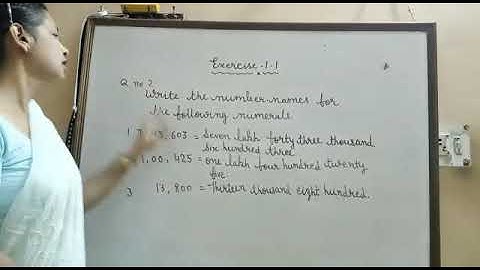 Exercise-1.1
Q no 2.
Write the number names for
the following numerals
1 7, 43, 603 = Seven lakh forty three thousand
six hundred three.
1,00, 425 = one lakh four hundred twenty
five.
3 13, 800 = Thirteen thousand eight hundred.